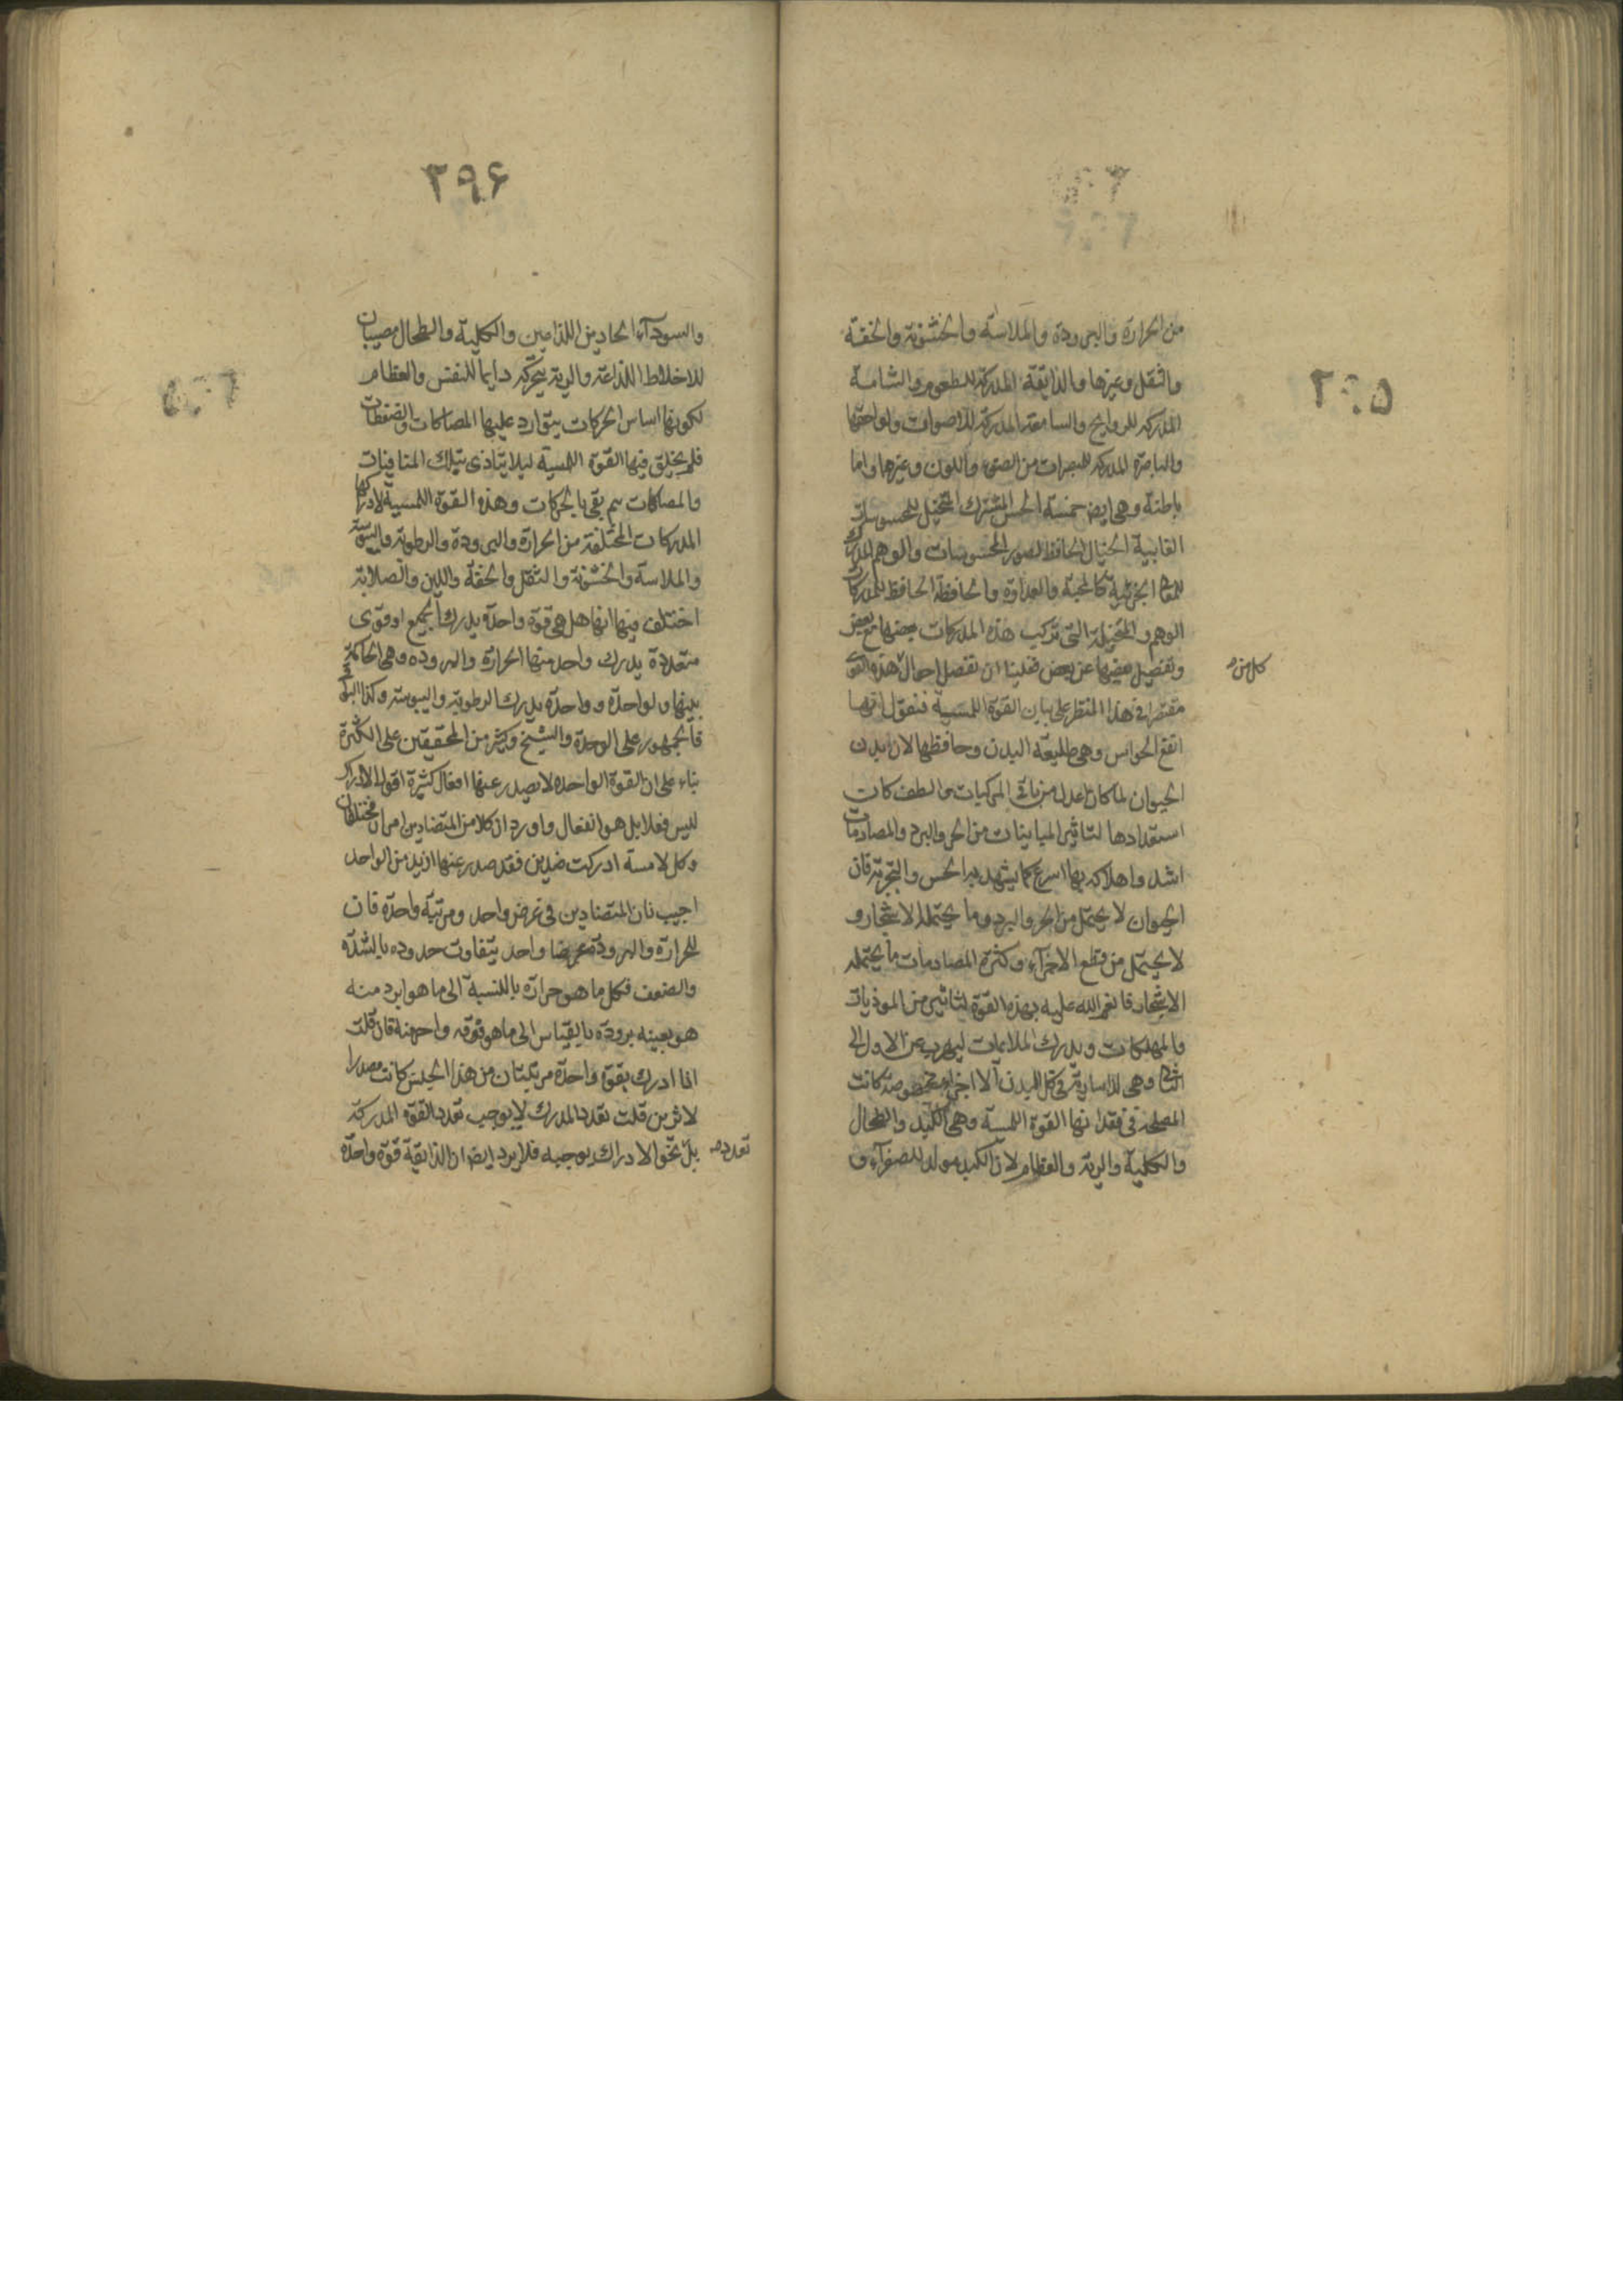 ٢٩٥
من الحرارة والبرودة والملاسة والخشونة والخفة
والثقل وغيرها والذايقة المدركة للطعوم والشامة
المدركه للروايح والسامعة المدركة للاصوات ولواحقها
والباصرة المدركه للمبصرات من الضوء واللون وغيرها واما
باطنة وهى ايض خمسة الحس المشترك المتخيل للمحسوسات
الغايبة الخيال الحافظ لصور المحسوسات والوهم المدرك
للمعانى الجزئية كالمحبة والعداوة والحافظة الحافظ لمدركات
الوهم والمتخيلة التى تركيب هذه المدركات بعضها مع بعض
وتفصيل بعضها عن بعض فعلينا ان نفصل احوال هذه القوى
كل من
مقتصرا فى هذا المنظر على بيان القوة اللمسية فنقول انها
انفع الحواس وهى طليعة البدن وحافظها لان بدن
الحيوان لما كان اعدل من باقى المركبات والطف كانت
استعدادها لتاثير المباينات من الحر والبرد والمصادمات
اشد واهلاكه بها اسرع كما يشهد به الحس والتجربة فان
الحيوان لا يحتمل من الحر والبرد وما يحتمله الاشجار و
لا يحتمل من قطع الاجزآء وكثرة المصادمات ما يحتمله
الاشجار فانعم الله عليه بهذه القوة لتاثير من الموذيات
والمهلكات ويدرك الملايمات ليهرب عن الاول الى
الثانى وهى سارية فى كل البدن الا اجزاء مخصوصة كانت
المصلحة فى فقدانها القوة اللمسة وهى الكبد والطحال
والكلية والرية والعظام لان الكبد مولد للصفرآء و
٢٩۶
والسودآء الحادين اللذاعين والكلية والطحال مصبان
للاخلاط اللذاعة والرية يتحركه دايما للنفس والعظام
لكونها اساس الحركات يتوارد عليها المصاكات والضغطات
فلم يخلق فيها القوة اللمسية ليلا يتاذى بتلك المنافيات
والمصاكات ثم بقى بالحركات وهذه القوة اللمسية لادراكها
المدركات المختلفة من الحرارة والبرودة والرطوبة واليبوسة
والملاسة والخشونة والثقل والخفة واللين والصلابة
اختلف فيها انها هل هى قوة واحدة يدرك الجميع او قوى
متعددة يدرك واحد منها الحرارة والبروده وهى الحاكمة
بينها ولواحدة وواحدة يدرك الرطوبة واليبوسة وكذا البواقى
فالجمهور على الوحدة والشيخ وكثير من المحققين على الكثرة
بناء على ان القوة الواحده لا يصدر عنها افعال كثيرة اقول الادراك
لليس فعلا بل هو انفعال واورد ان كلا من المتضادين امران مختلفان
وكل لامسة ادركت ضدين فقد صدر عنها ازيد من الواحد
اجيب بان المتضادين فى غرض واحد ومرتبة واحدة فان
للحرارة والبرودة عرضا واحد يتفاوت حدوده بالشدة
والضعف فكل ما هو حرارة باللنسبة الى ما هو ابرد منه
هو بعينه برودة بالقياس الى ما هو فوقه واحر منه فان قلت
اذا ادرك بقوة واحدة مرتبتان من هذا الجنس كانت مصدرا
لاثرين قلت تعدد المدرك لا يوجب تعدد القوة المدركة
بل نحو الادراك يوجبه فلا يرد ايض ان الذايقة قوة واحدة
تعدد